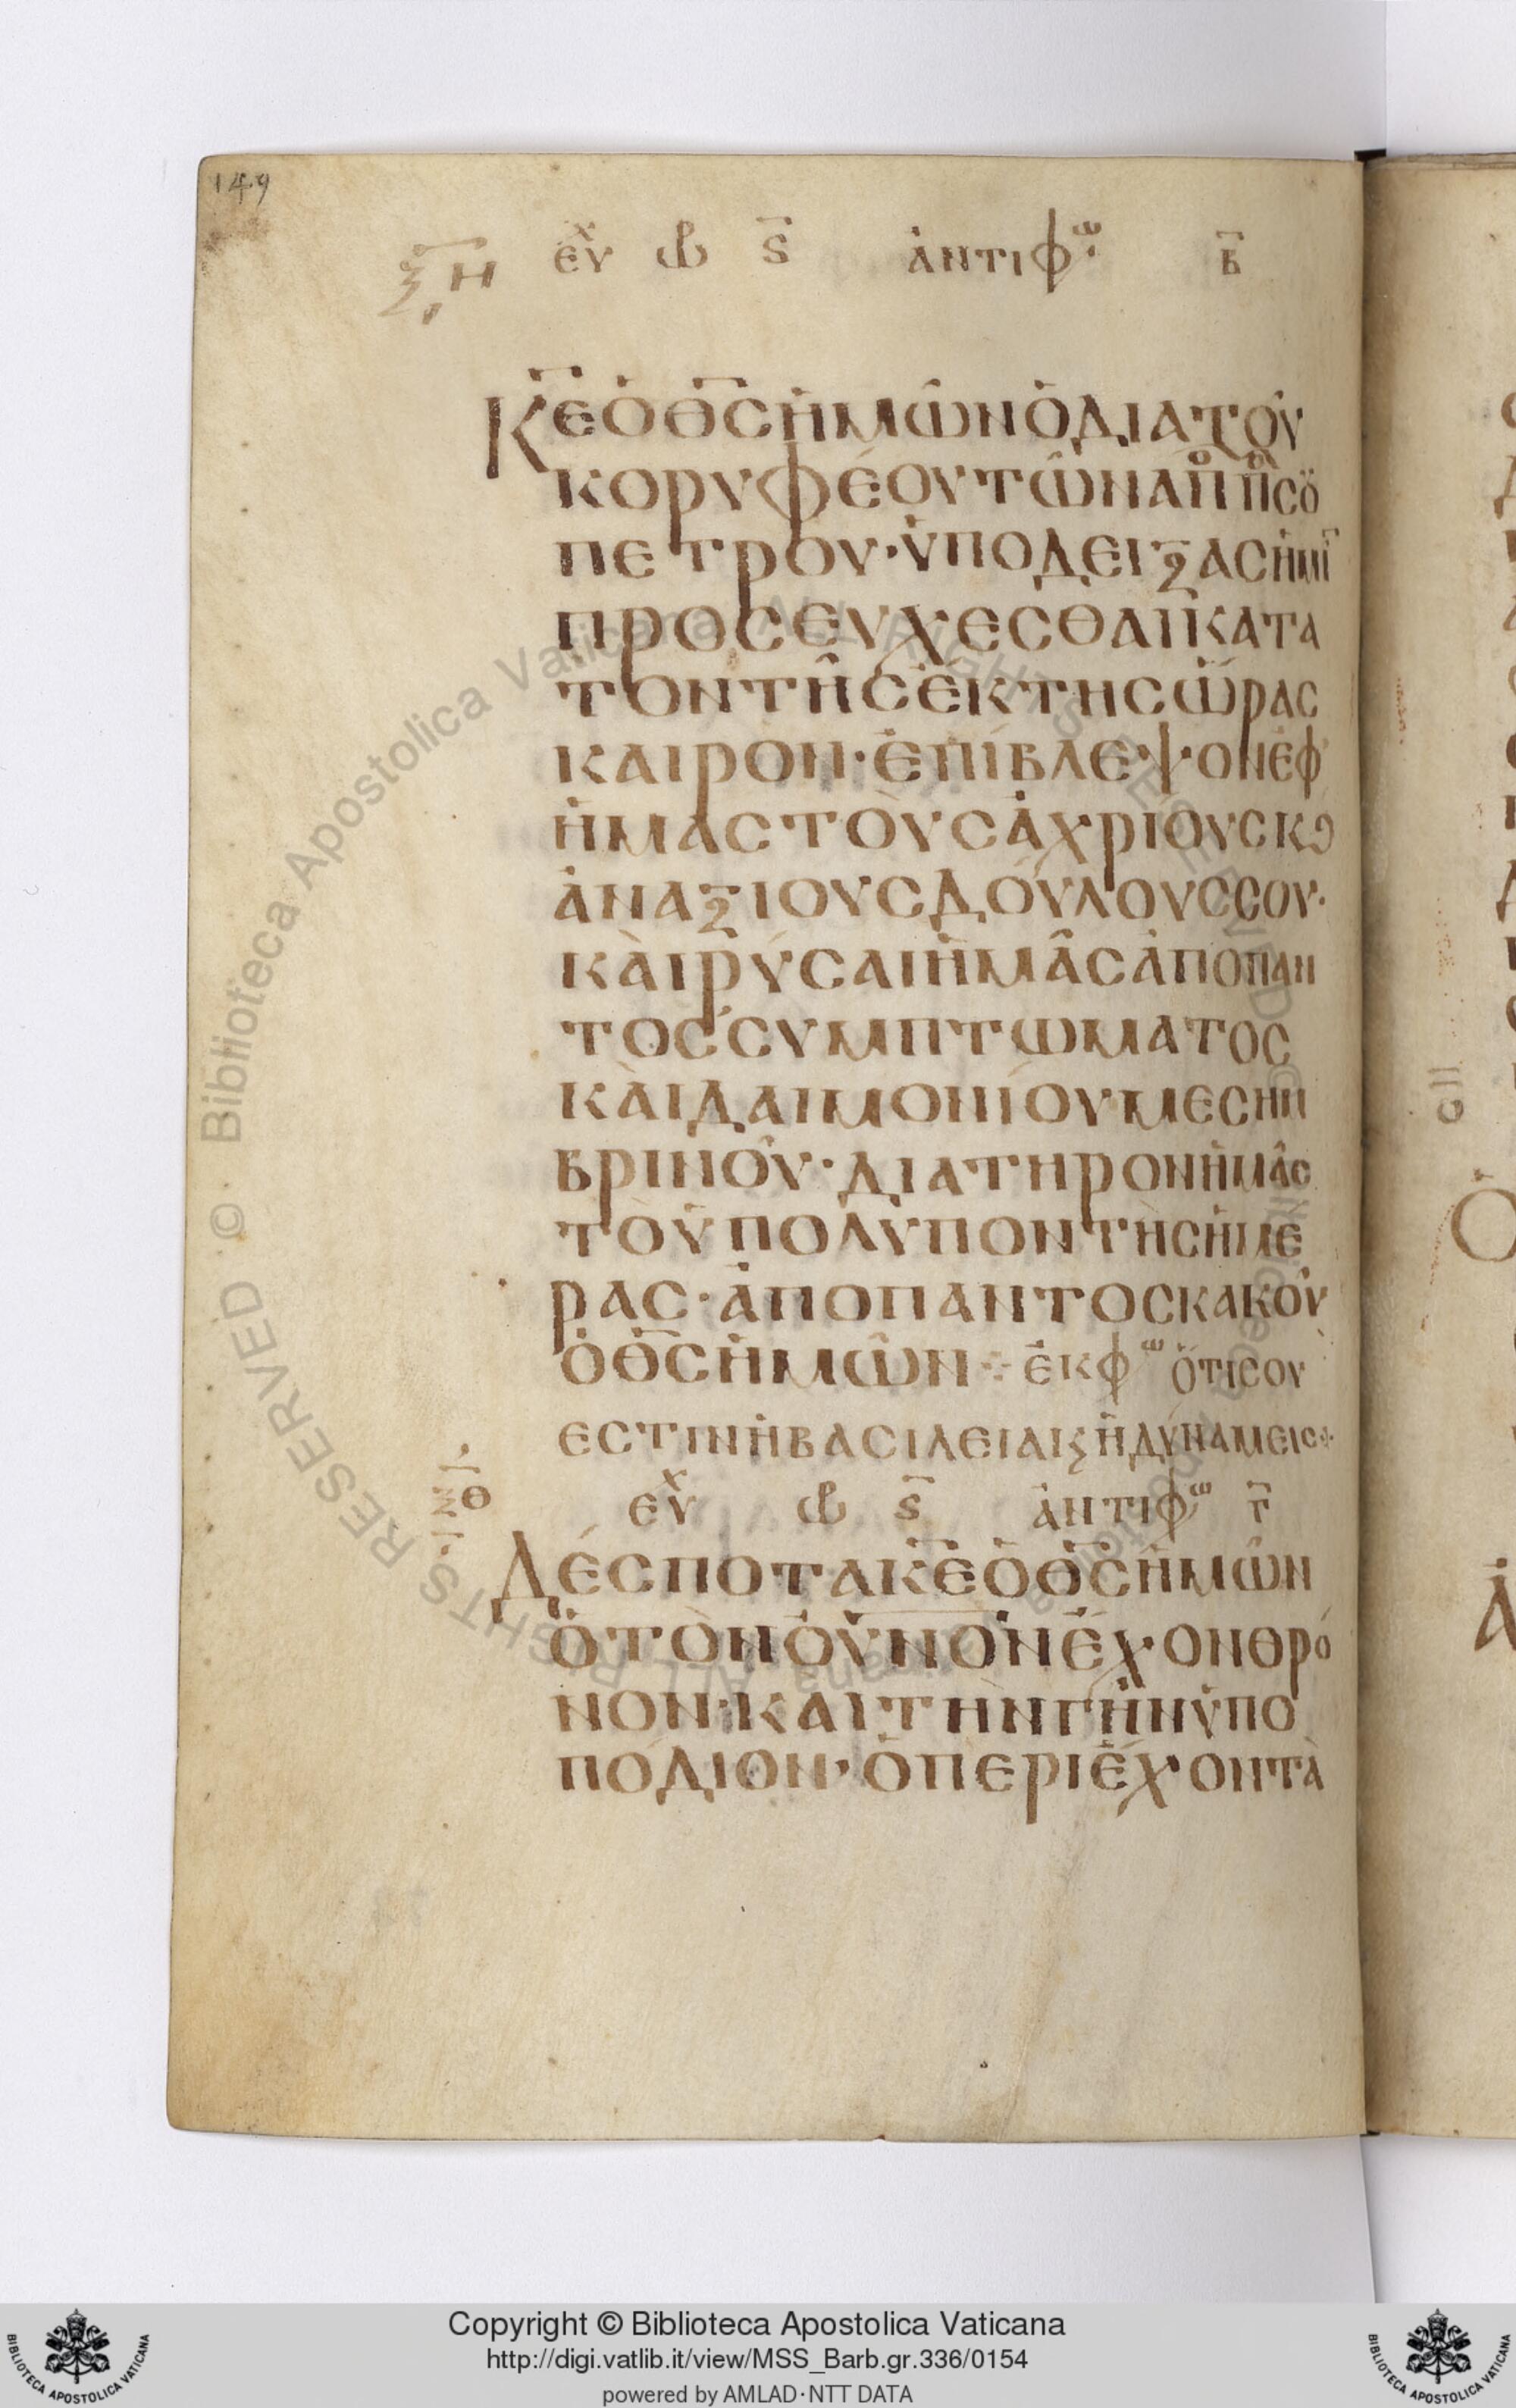 149
ξη ευχ ὡρ ς̄ ἀντιφω β̄
Κ̅Ε̅ Ὁ Θ̅Σ̅ ἩΜῶΝ Ὁ ΔΙΑ ΤΟῦ
ΚΟΡΥΦΈΟΥ ΤῶΝ ἈΠΠ ΣΟΥ
ΠΕΤΡΟΥ· ὙΠΟΔΕΙΞΑΣ ἩΜΙ̅
ΠΡΟΣΕΥΧΕΣΘΑΙ ΚΑΤΑ
ΤΟΝ ΤῆΣ ἝΚΤΗΣ ὭΡΑΣ
ΚΑΙΡΟΝ· ἘΠΙΒΛΕΨΟΝ ἘΦ
ἩΜΑΣ ΤΟῪΣ ἈΧΡΙΟΥΣ Κ
ἈΝΑΞΙΟΥΣ ΔΟΎΛΟΥΣ ΣΟΥ·
ΚᾺΙ ΡΎΣΑΙ ἩΜᾶΣ ἈΠΟ ΠΑΝ
ΤΟΣ ΣΥΜΠΤΩΜΑΤΟΣ
ΚᾺΙ ΔΑΙΜΟΝΊΟΥ ΜΕΣΗΝ
ΒΡΙΝΟῦ· ΔΙΑΤΗΡΟΝ ἩΜᾶΣ
ΤΟ ὙΠΟΛΥΠΟΝ ΤῊΣ ἩΜΕ
ΡΑΣ· ἈΠΟ ΠΑΝΤΟΣ ΚΑΚΟῦ
Ὁ Θ̅Σ̅ ἩΜῶΝ ⁘ ἘΚΦω ὍΤΙ ΣΟΥ
ΕΣΤΙΝ Ἡ ΒΑΣΙΛΕΙΑ Κϛ Ἡ ΔΎΝΑΜΕΙΣ⁘
ΞΘ ΕΥΧ ὡρ ς̄ ἈΝΤΙΦω Γ̄
ΔΈΣΠΟΤΑ Κ̅Ε̅ Ὁ Θ̅Σ̅ ἩΜῶΝ
Ὁ ΤῸΝ ΟΥ̅Ν̅Ο̅Ν ἜΧΟΝ ΘΡΌ
ΝΟΝ· ΚΑΙ ΤῊΝ ΓῆΝ ὙΠΟ
ΠΌΔΙΟΝ· Ὁ ΠΕΡΙΈΧΟΝ ΤᾺ
Biblioteca Apostolica Vaticana
ALL RIGHTS RESERVED ©
Copyright © Biblioteca Apostolica Vaticana
http://digi.vatlib.it/view/MSS_Barb.gr.336/0154
powered by AMLAD·NTT DATA
BIBLIOTECA APOSTOLICA VATICANA
BIBLIOTECA APOSTOLICA VATICANA